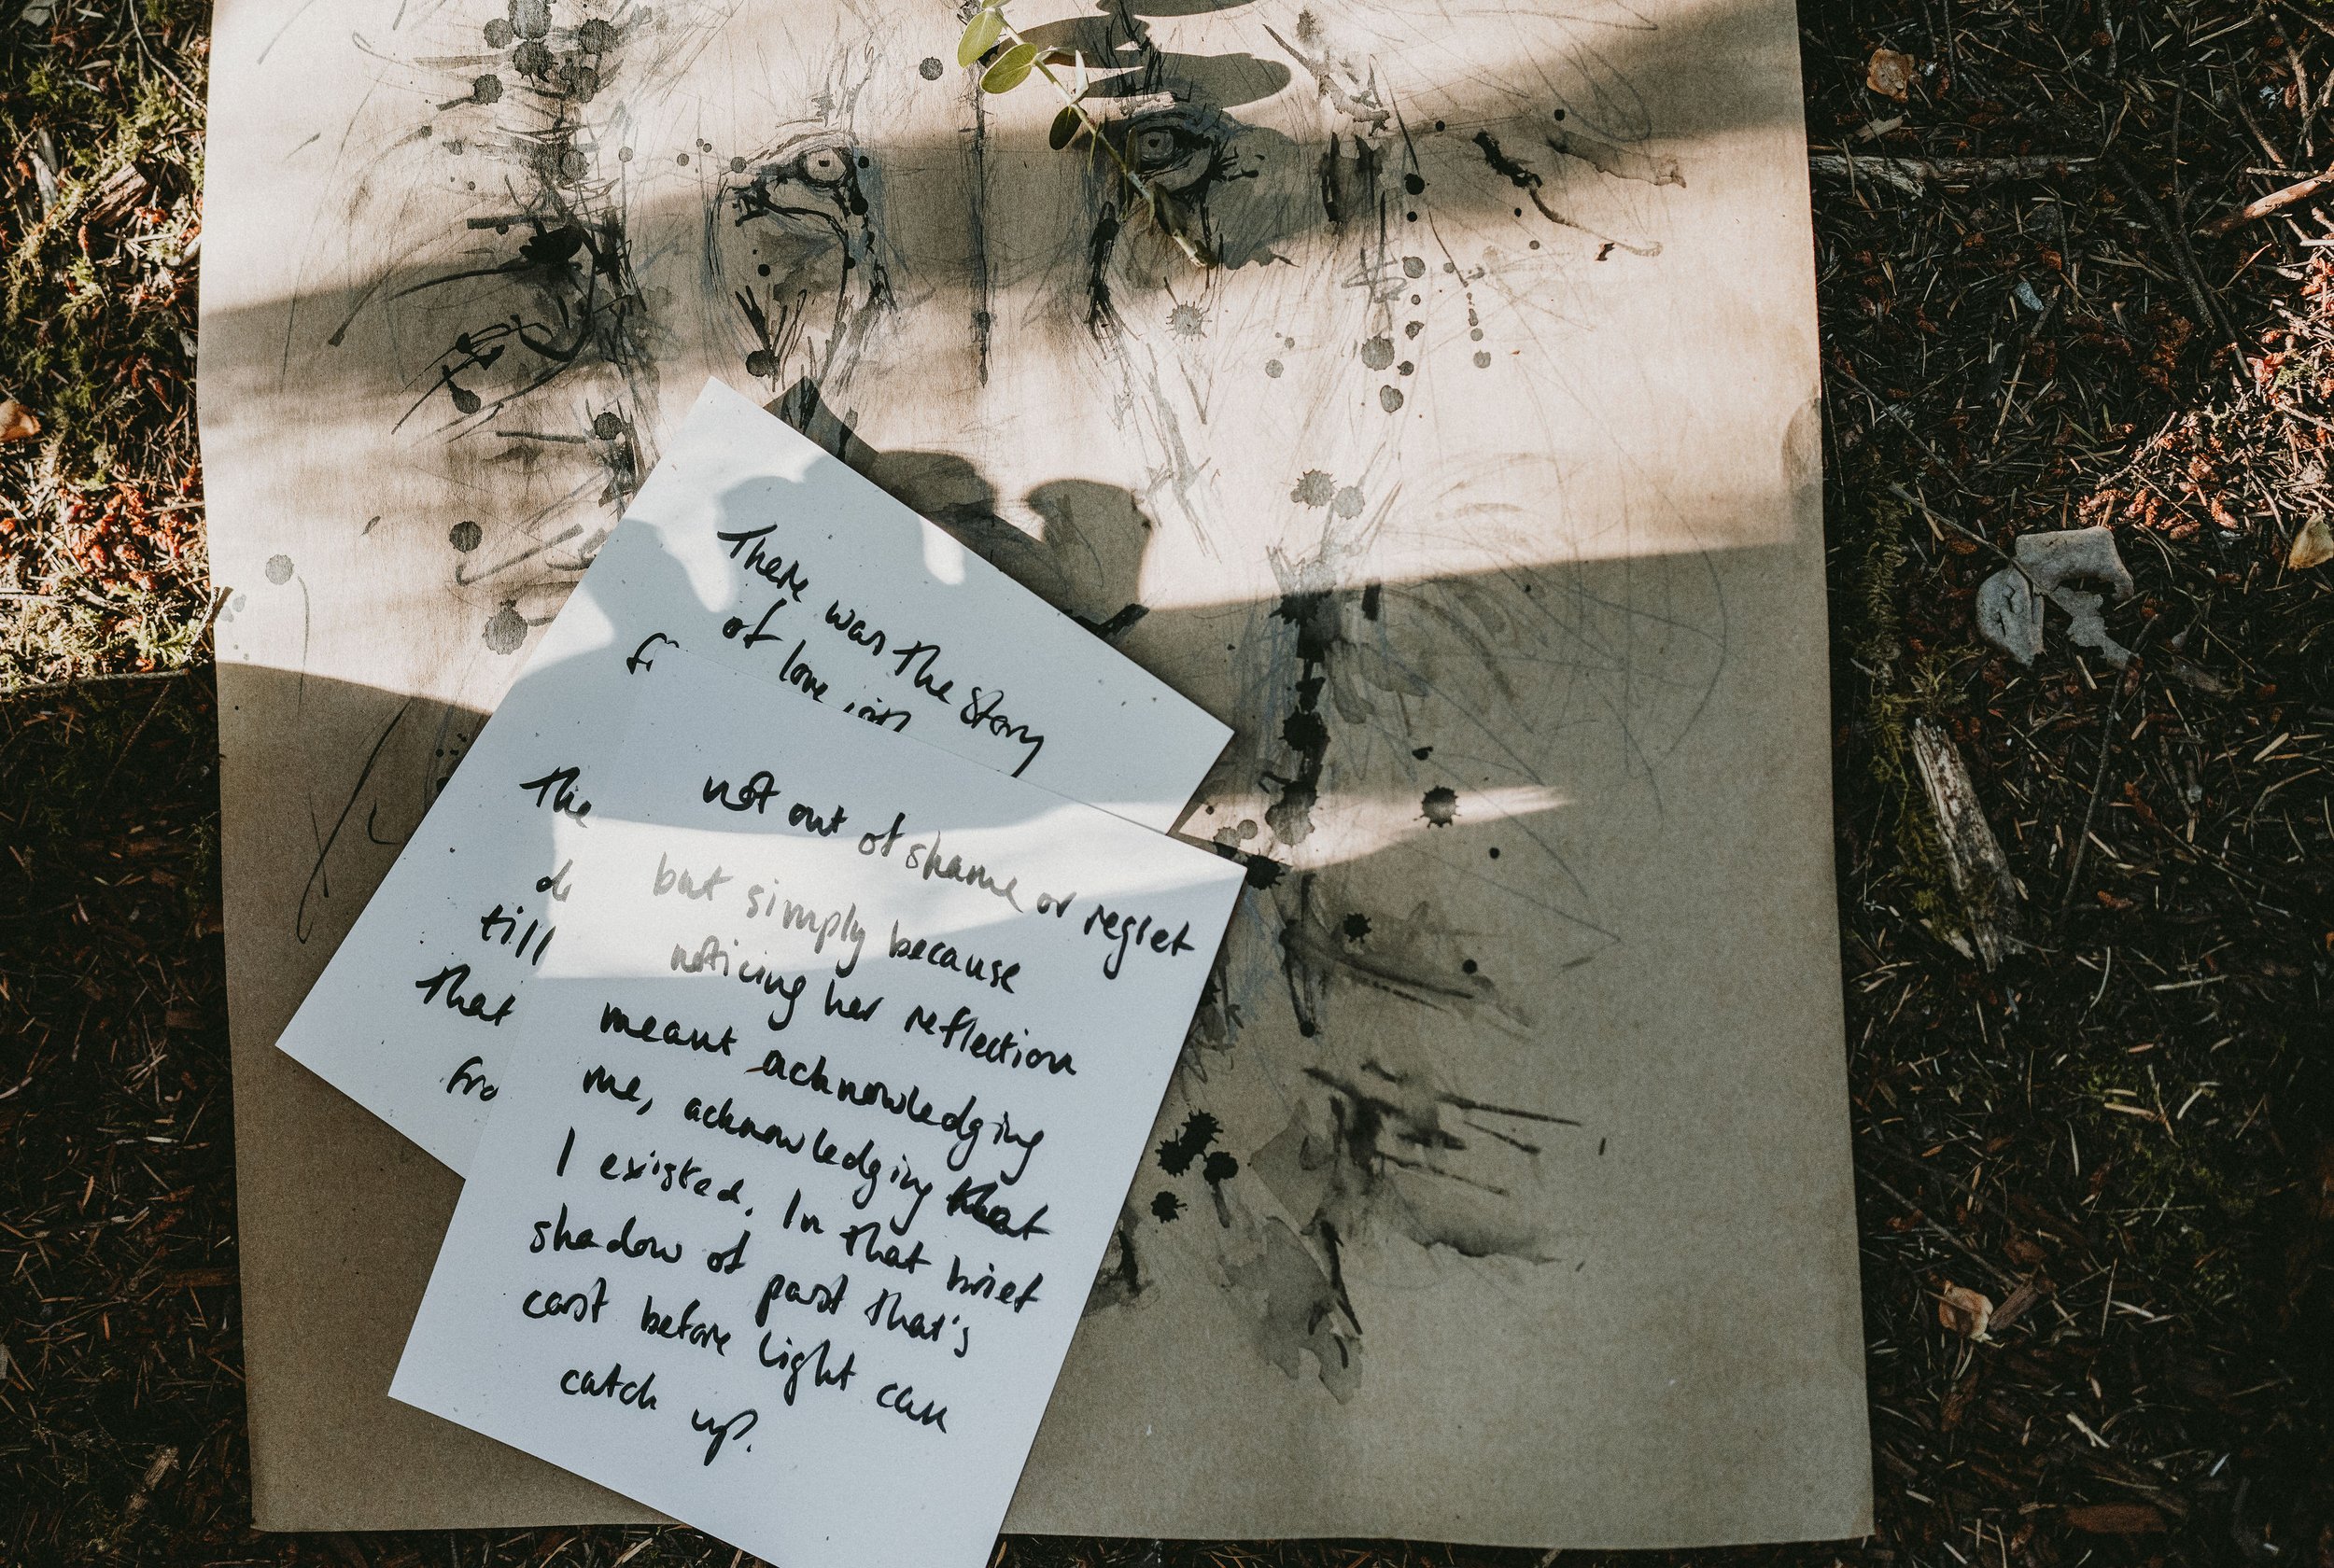 There was the story
of love
The
till
That
not out of shame or regret
but simply because
noticing her reflection
meant acknowledging
me, acknowledging that
I existed. In that brief
shadow of past that's
cast before light can
catch up.